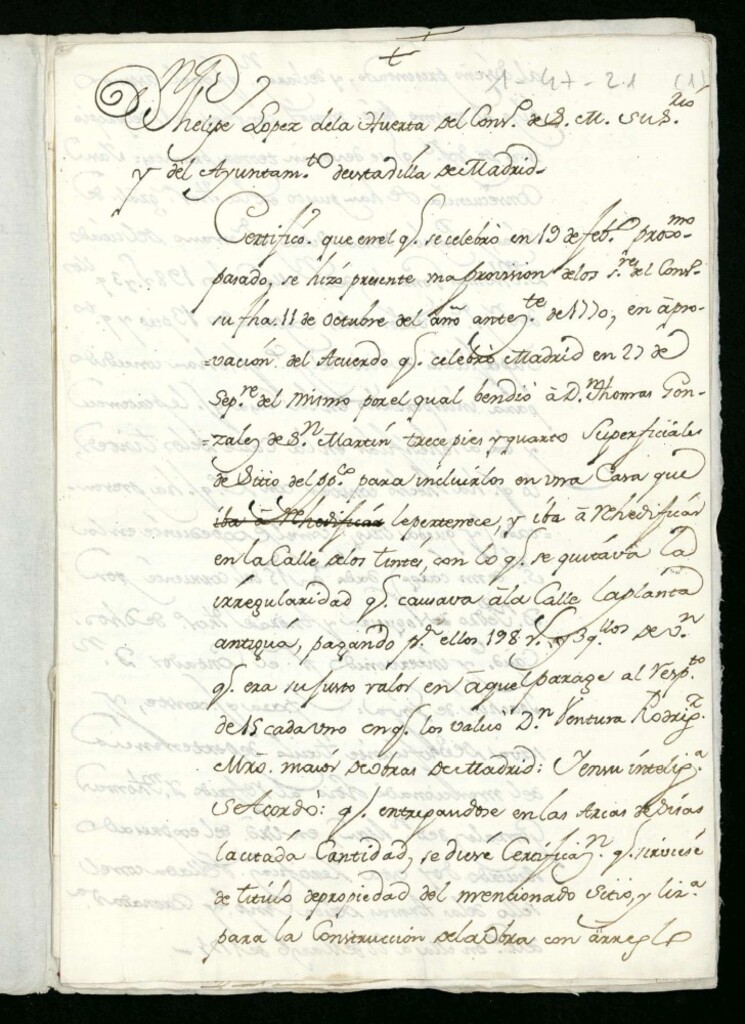 1-47-21 (1)
D.n Phelipe Lopez dela Huerta del Cons.º de S. M. su S.rio
y del Ayuntam.to deesta Villa de Madrid.
Certifico que en el q.e se celebró en 19 de feb.º proxmo
pasado, se hizó presente una provision delos S.res del Cons.º
su fha. 11 de Octubre del año antez.te de 1770, en ápro-
=vación del Acuerdo q.e celebró Madrid en 27 de
Sep.re del mismo por el qual bendió á D.n Thomas Gon-
=zalez de S.n Martin trece pies y quarto Superficiales
de Sitio del pp.co para incluirlos en una Casa que
iba á Rehedificar lepertenece, y iba á Rehedificar
en la Calle delos tintes, con lo q.e se quitava la
irregularidad q.e causava ála Calle la planta
antigua, pagando p.r ellos 198 r.s y 3 q.llos de V.n
q.e era su justo valor en áquel parage al resp.to
de 15 cada uno en q.e los valuó D.n Ventura Rodrig.z
Mrô. maior de obras de Madrid: Y en su intelig.a
se Acordó: q.e entregandose en las Arcas de Sisas
la citada Cantidad, se diese Certificaz.n q.e sirviese
de titulo de propiedad del mencionado Sitio, y liz.a
para la Construcción dela Obra con árreglo